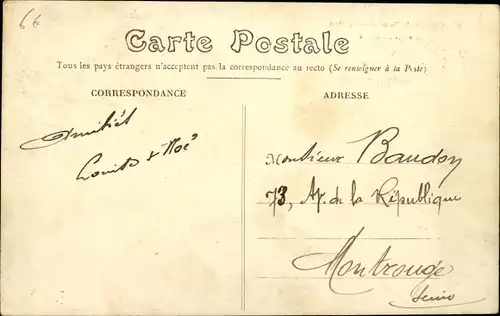 6€
Carte Postale
Tous les pays étrangers n'acceptent pas la correspondance au recto (Se renseigner à la Poste)
CORRESPONDANCE
ADRESSE
Amitiés
Louis & Noé
Monsieur Baudon
73, Av. de la République
Montrouge
Seine